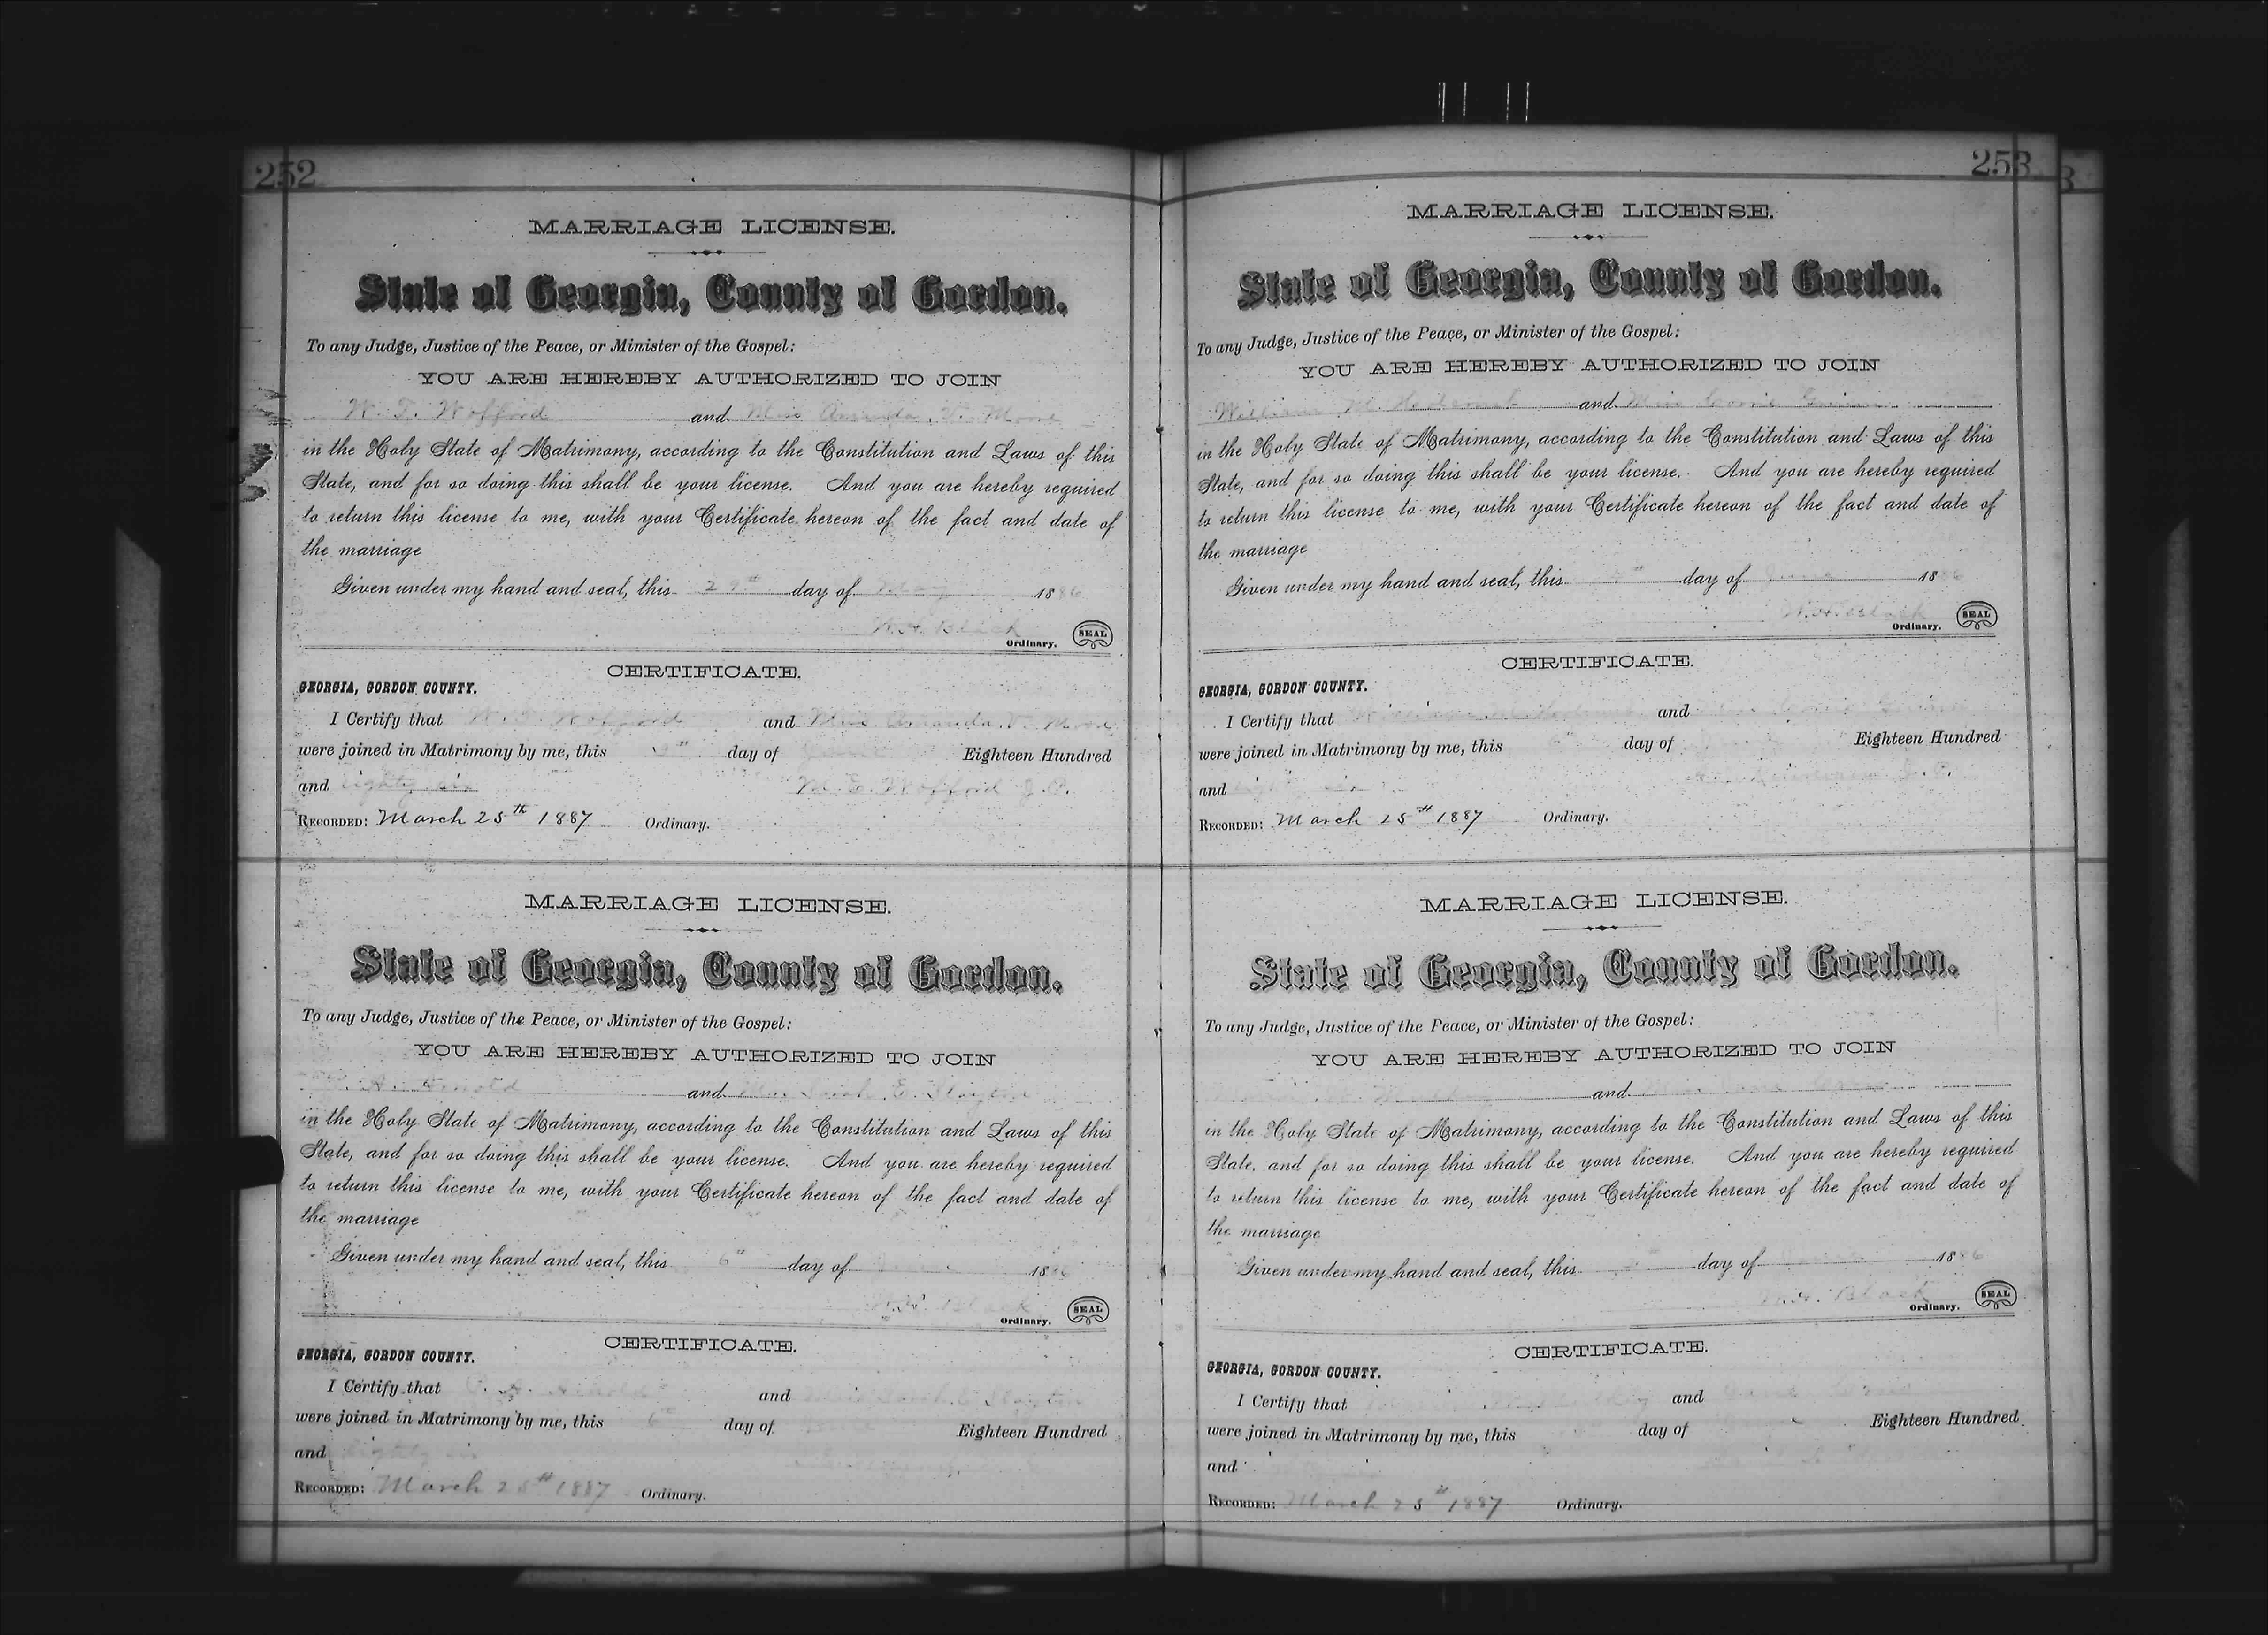 252
MARRIAGE LICENSE.
State of Georgia, County of Gordon.
To any Judge, Justice of the Peace, or Minister of the Gospel:
YOU ARE HEREBY AUTHORIZED TO JOIN
W. T. Wofford and Miss Amanda V. Moore
in the Holy State of Matrimony, according to the Constitution and Laws of this
State, and for so doing this shall be your license. And you are hereby required
to return this license to me, with your Certificate hereon of the fact and date of
the marriage
Given under my hand and seal, this 29th day of May 1886
W. H. Black
Ordinary. SEAL
CERTIFICATE.
GEORGIA, GORDON COUNTY.
I Certify that W. T. Wofford and Miss Amanda V. Moore
were joined in Matrimony by me, this day of June Eighteen Hundred
and eighty six M. E. Wofford J. P.
RECORDED: March 25th 1887 Ordinary.
MARRIAGE LICENSE.
State of Georgia, County of Gordon.
To any Judge, Justice of the Peace, or Minister of the Gospel:
YOU ARE HEREBY AUTHORIZED TO JOIN
A. Arnold and Miss Sarah E. Slayton
in the Holy State of Matrimony, according to the Constitution and Laws of this
State, and for so doing this shall be your license. And you are hereby required
to return this license to me, with your Certificate hereon of the fact and date of
the marriage
Given under my hand and seal, this 6th day of 1886
W. H. Black
Ordinary. SEAL
CERTIFICATE.
GEORGIA, GORDON COUNTY.
I Certify that A. Arnold and Miss Sarah E. Slayton
were joined in Matrimony by me, this 6th day of Eighteen Hundred
and eighty six
RECORDED: March 25th 1887 Ordinary.
253
MARRIAGE LICENSE.
State of Georgia, County of Gordon.
To any Judge, Justice of the Peace, or Minister of the Gospel:
YOU ARE HEREBY AUTHORIZED TO JOIN
William M. and Miss
in the Holy State of Matrimony, according to the Constitution and Laws of this
State, and for so doing this shall be your license. And you are hereby required
to return this license to me, with your Certificate hereon of the fact and date of
the marriage
Given under my hand and seal, this day of June 1886
W. H. Black
Ordinary. SEAL
CERTIFICATE.
GEORGIA, GORDON COUNTY.
I Certify that William M. and Miss
were joined in Matrimony by me, this day of Eighteen Hundred
and eighty six J. P.
RECORDED: March 25th 1887 Ordinary.
MARRIAGE LICENSE.
State of Georgia, County of Gordon.
To any Judge, Justice of the Peace, or Minister of the Gospel:
YOU ARE HEREBY AUTHORIZED TO JOIN
and Miss
in the Holy State of Matrimony, according to the Constitution and Laws of this
State, and for so doing this shall be your license. And you are hereby required
to return this license to me, with your Certificate hereon of the fact and date of
the marriage
Given under my hand and seal, this day of 1886
W. H. Black
Ordinary. SEAL
CERTIFICATE.
GEORGIA, GORDON COUNTY.
I Certify that and
were joined in Matrimony by me, this day of Eighteen Hundred
and
RECORDED: March 25th 1887 Ordinary.